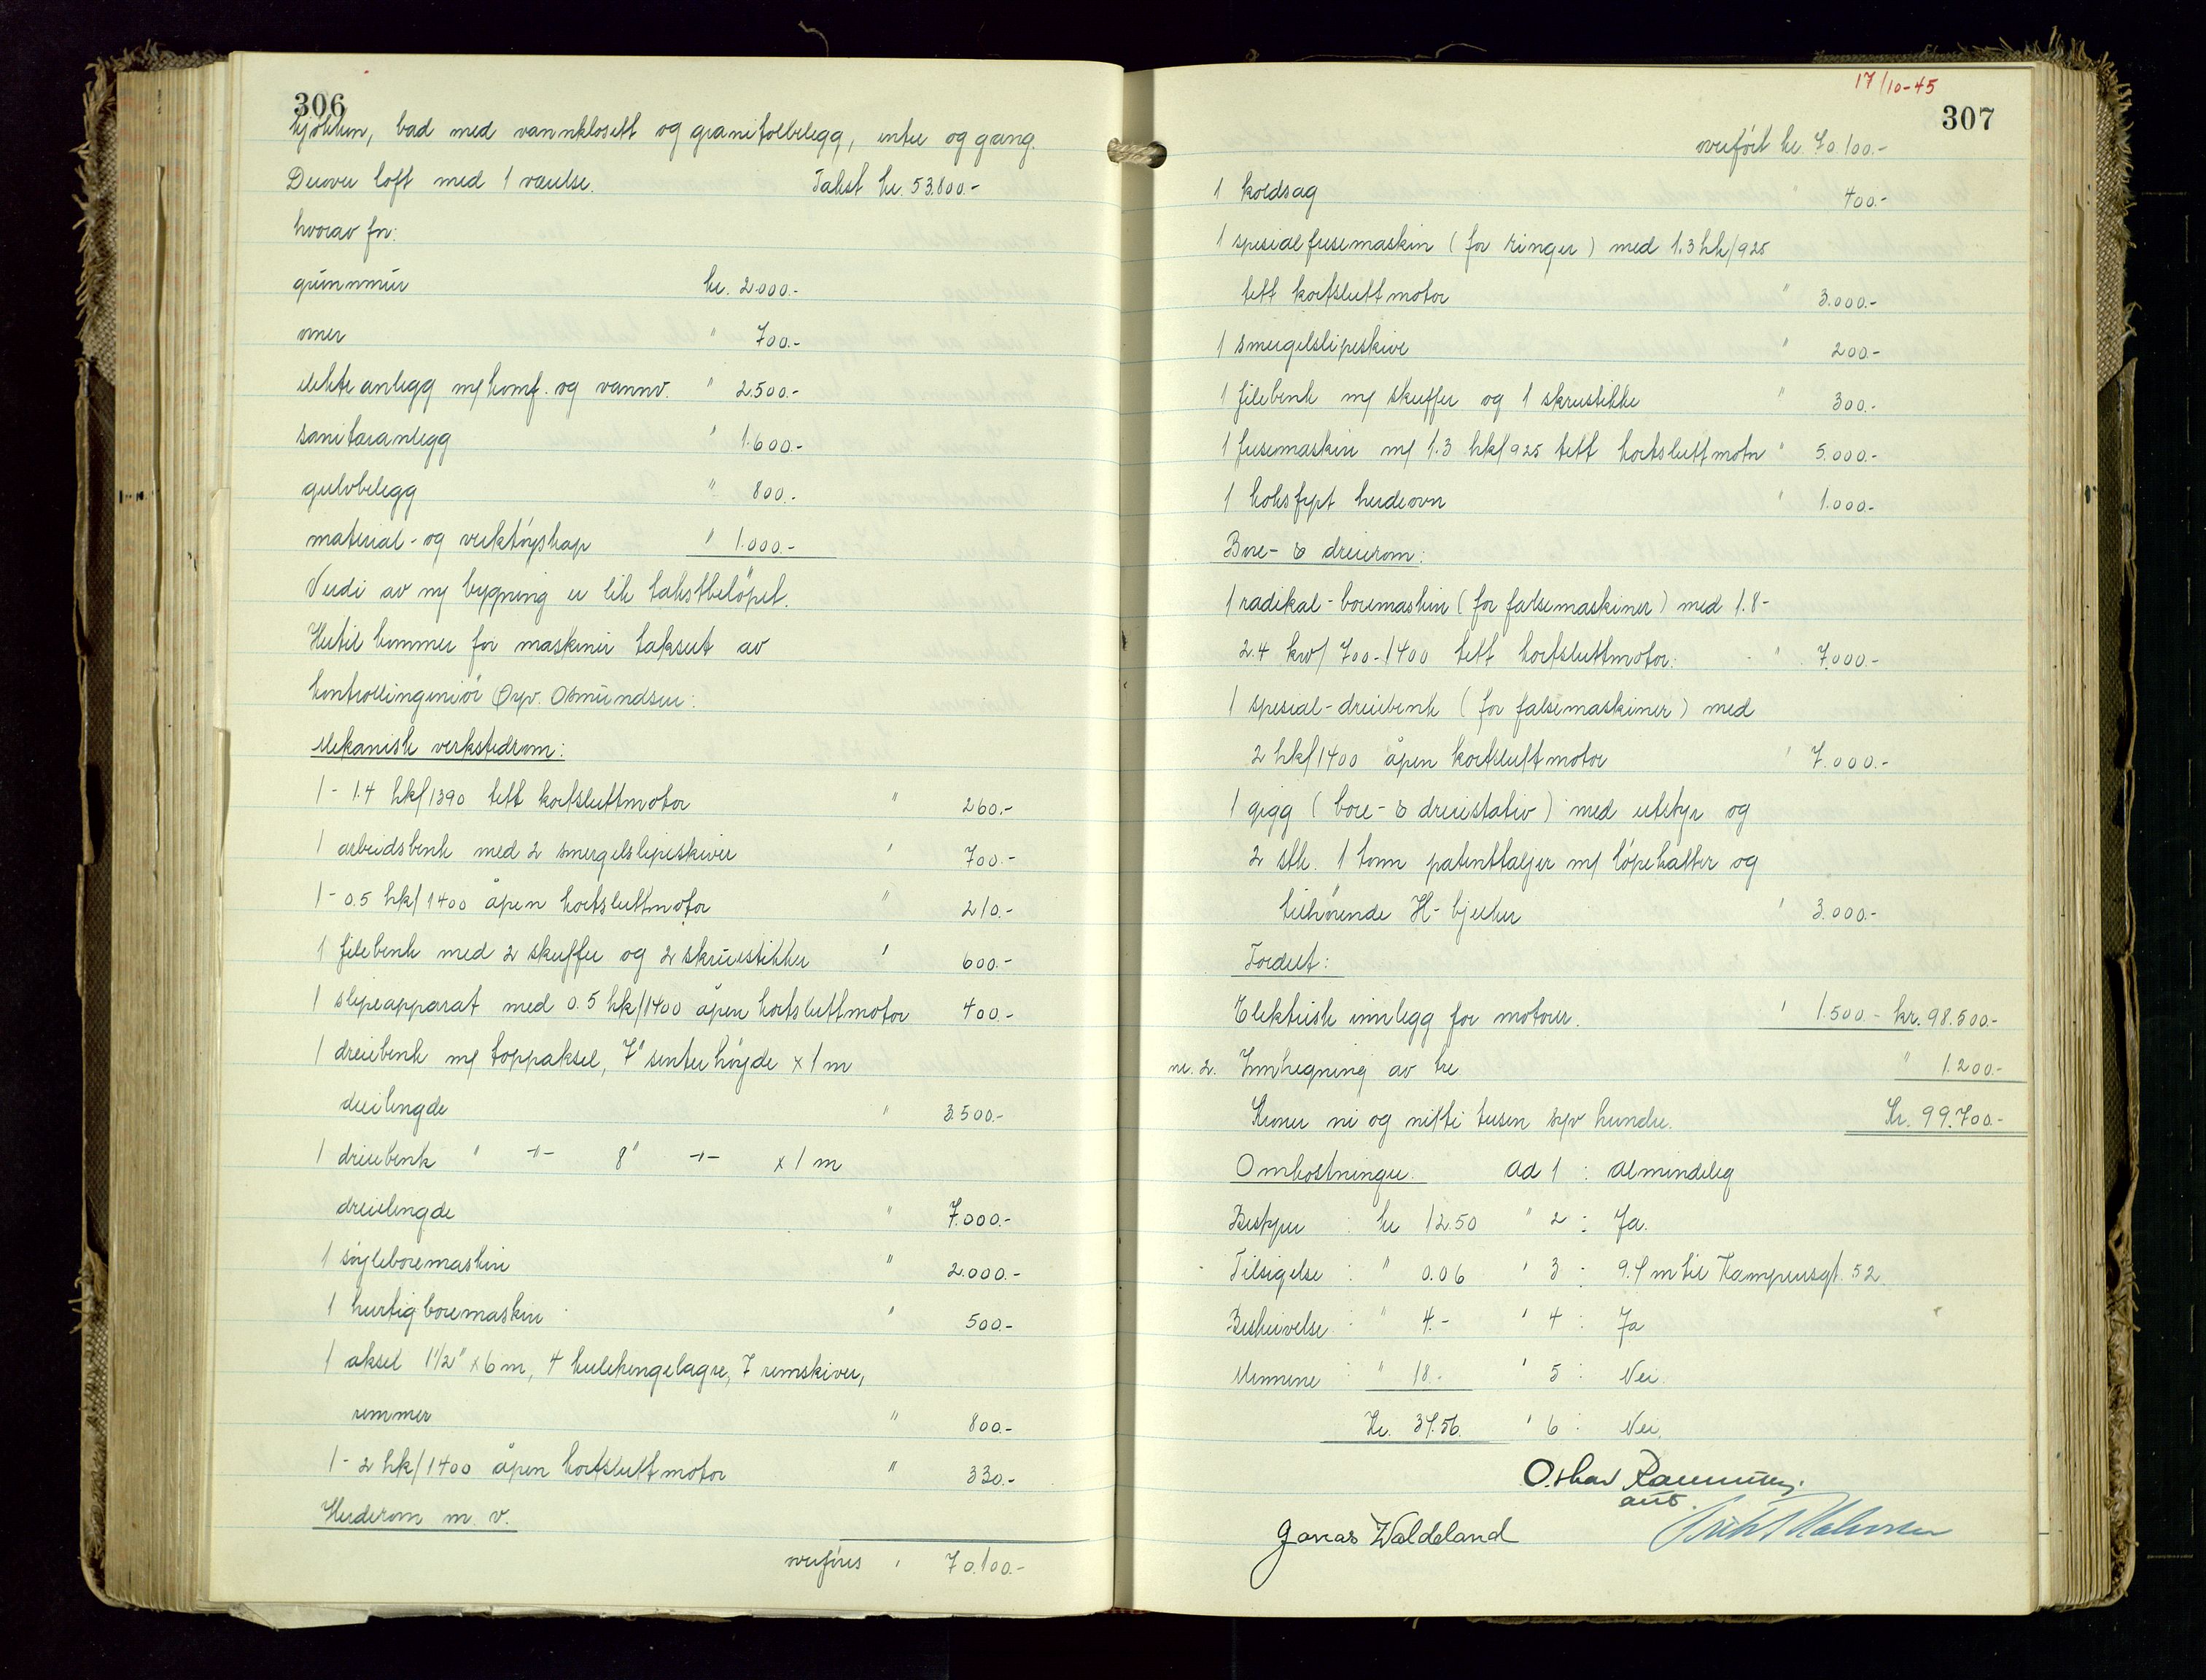 306
kjøkken, bad med vannklosett og granitolbelegg, entre og gang.
Derover loft med 1 værelse. Takst kr. 53.800.-
hvorav for:
grunnmur kr. 2.000.-
ovner " 700.-
elektr. anlegg m/ komf. og vannv. " 2.500.-
sanitæranlegg " 1.600.-
gulvbelegg " 800.-
material- og verktøyskap " 1.000.-
Verdi av ny bygning er lik takstbeløpet.
Hertil kommer for maskiner taksert av
kontrollingeniør Øyv. Osmundsen:
Mekanisk verkstedrom:
1 - 1.4 hk/1390 tett kortsluttmotor " 260.-
1 arbeidsbenk med 2 smergelslipeskiver " 700.-
1 - 0.5 hk/1400 åpen kortsluttmotor " 210.-
1 filebenk med 2 skuffer og 2 skruestikker " 600.-
1 slipeapparat med 0.5 hk/1400 åpen kortsluttmotor 400.-
1 dreiebenk m/ toppaksel, 7" senterhøyde x 1 m
dreielengde " 3.500.-
1 dreiebenk " -"- 8" -"- x 1 m
dreielengde " 7.000.-
1 søyleboremaskin " 2.000.-
1 hurtigboremaskin " 500.-
1 aksel 1 1/2" x 6 m, 4 kulehengelagre, 7 remskiver,
remmer " 800.-
1 - 2 hk/1400 åpen kortsluttmotor " 330.-
Herderom m. v.
overføres " 70.100.-
17/10-45
307
overført kr. 70.100.-
1 koldsag " 400.-
1 spesialfresemaskin (for ringer) med 1.3 hk/925
tett kortsluttmotor " 3.000.-
1 smergelslipeskive " 200.-
1 filebenk m/ skuffer og 1 skrustikke " 300.-
1 fresemaskin m/ 1.3 hk/925 tett kortsluttmotor " 5.000.-
1 koksfyrt herdeovn " 1.000.-
Bore- & dreierom:
1 radikal-boremaskin (for falsemaskiner) med 1.8-
2.4 kw/ 700-1400 tett kortsluttmotor. " 7.000.-
1 spesial-dreiebenk (for falsemaskiner) med
2 hk/1400 åpen kortsluttmotor " 7.000.-
1 gigg (bore- & dreiestativ) med utstyr og
2 stk. 1 tonn patenttaljer m/ løpekatter og
tilhørende H-bjelker " 3.000.-
Fordelt:
Elektrisk innlegg for motorer. " 1.500.- kr. 98.500.-
nr. 2. Innhegning av tre " 1.200.-
Kroner ni og nitti tusen syv hundre. Kr. 99.700.-
Omkostninger. ad 1 : Almindelig
Bestyrer : kr 12.50 " 2 : Ja.
Tilsigelse : " 0.06 " 3 : 9.4 m til Kampensgt. 52
Beskrivelse : " 4.- " 4 : Ja
Mennene : " 18.- " 5 : Nei.
Kr. 34.56. " 6 : Nei.
Oskar
Jonas Waldeland